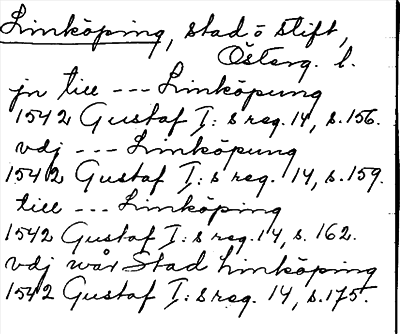 Linköping, stad o stift,
Österg. l.
jn till --- Linköpung
1542 Gustaf I: s reg. 14, s. 156.
vdj --- Linköpung
1542 Gustaf I: s reg. 14, s. 159.
till --- Linköping
1542 Gustaf I: s reg. 14, s. 162.
vdj wår Stad Linköping
1542 Gustaf I: s reg. 14, s. 175.